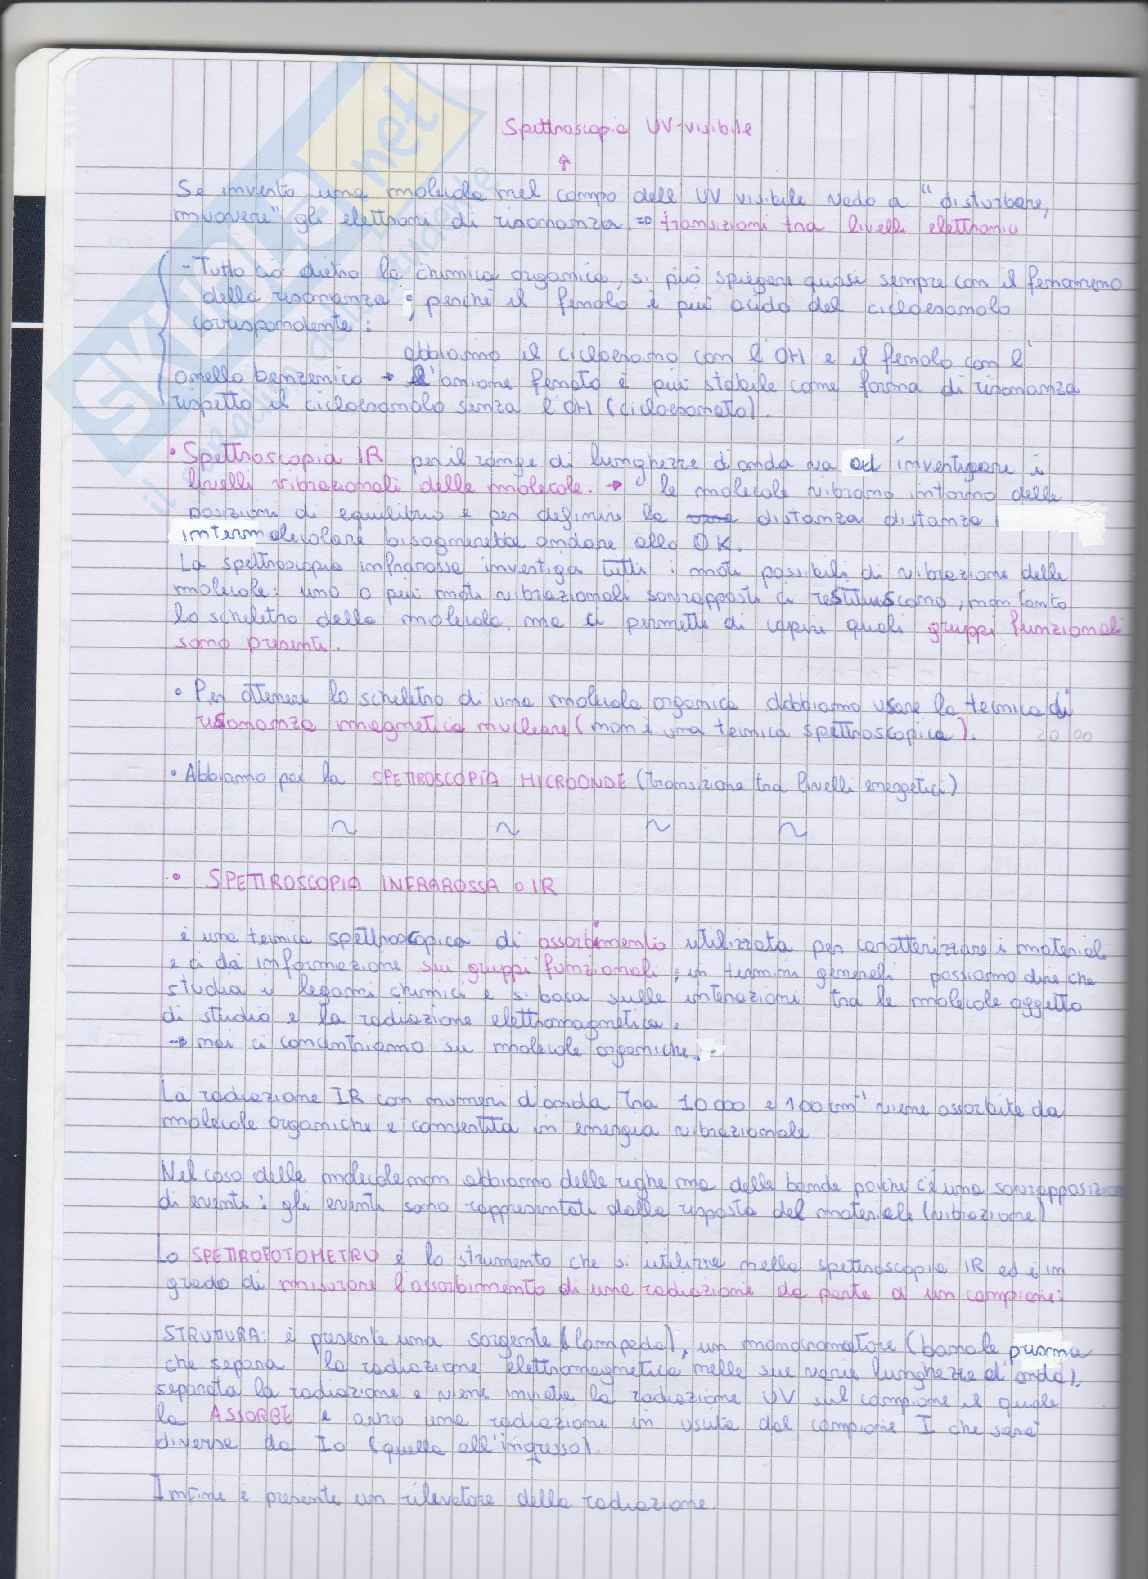 Spettroscopia UV-visibile
Se investo una molecola nel campo delle UV visibile vado a "disturbare,
muovere" gli elettroni di risonanza => transizioni tra livelli elettronici
- Tutto ciò dietro la chimica organica, si può spiegare quasi sempre con il fenomeno
della risonanza; perché il fenolo è più acido del cicloesanolo
corrispondente:
abbiamo il cicloesano con l'OH e il fenolo con l'
anello benzenico → l'anione fenato è più stabile come forma di risonanza
rispetto il cicloesanolo senza l'OH (cicloesanato).
• Spettroscopia IR per il range di lunghezze d'onda va ad investigare i
livelli vibrazionali delle molecole. → le molecole vibrano intorno delle
posizioni di equilibrio e per definire la distanza distanza
intermolecolare bisognerebbe andare allo 0K.
La spettroscopia infrarossa investiga tutti i moti possibili di vibrazione delle
molecole: uno o più moti vibrazionali sovrapposti ci restituiscono, non tanto
lo scheletro della molecola, ma ci permette di capire quali gruppi funzionali
sono presenti.
• Per ottenere lo scheletro di una molecola organica dobbiamo usare la tecnica di
risonanza magnetica nucleare (non è una tecnica spettroscopica).
• Abbiamo poi la SPETTROSCOPIA MICROONDE (transizione tra livelli energetici)
~ ~ ~ ~
• SPETTROSCOPIA INFRAROSSA o IR
è una tecnica spettroscopica di assorbimento utilizzata per caratterizzare i materiali
e ci dà informazione sui gruppi funzionali, in termini generali possiamo dire che
studia i legami chimici e si basa sulle interazioni tra le molecole oggetto
di studio e la radiazione elettromagnetica.
→ noi ci concentriamo su molecole organiche.
La radiazione IR con numeri d'onda tra 10000 e 100 cm⁻¹ viene assorbita da
molecole organiche e convertita in energia vibrazionale
Nel caso delle molecole non abbiamo delle righe ma delle bande poiché c'è una sovrapposizione
di eventi: gli eventi sono rappresentati dalla risposta del materiale (vibrazione)
Lo SPETTROFOTOMETRO è lo strumento che si utilizza nella spettroscopia IR ed è in
grado di misurare l'assorbimento di una radiazione da parte di un campione:
STRUTTURA: è presente una sorgente (lampada), un monocromatore (banale prisma
che separa la radiazione elettromagnetica nelle sue varie lunghezze d'onda),
separata la radiazione e viene inviata la radiazione UV sul campione il quale
la ASSORBE e avrò una radiazione in uscita dal campione I che sarà
diversa da Io (quella all'ingresso).
Infine è presente un rilevatore della radiazione.